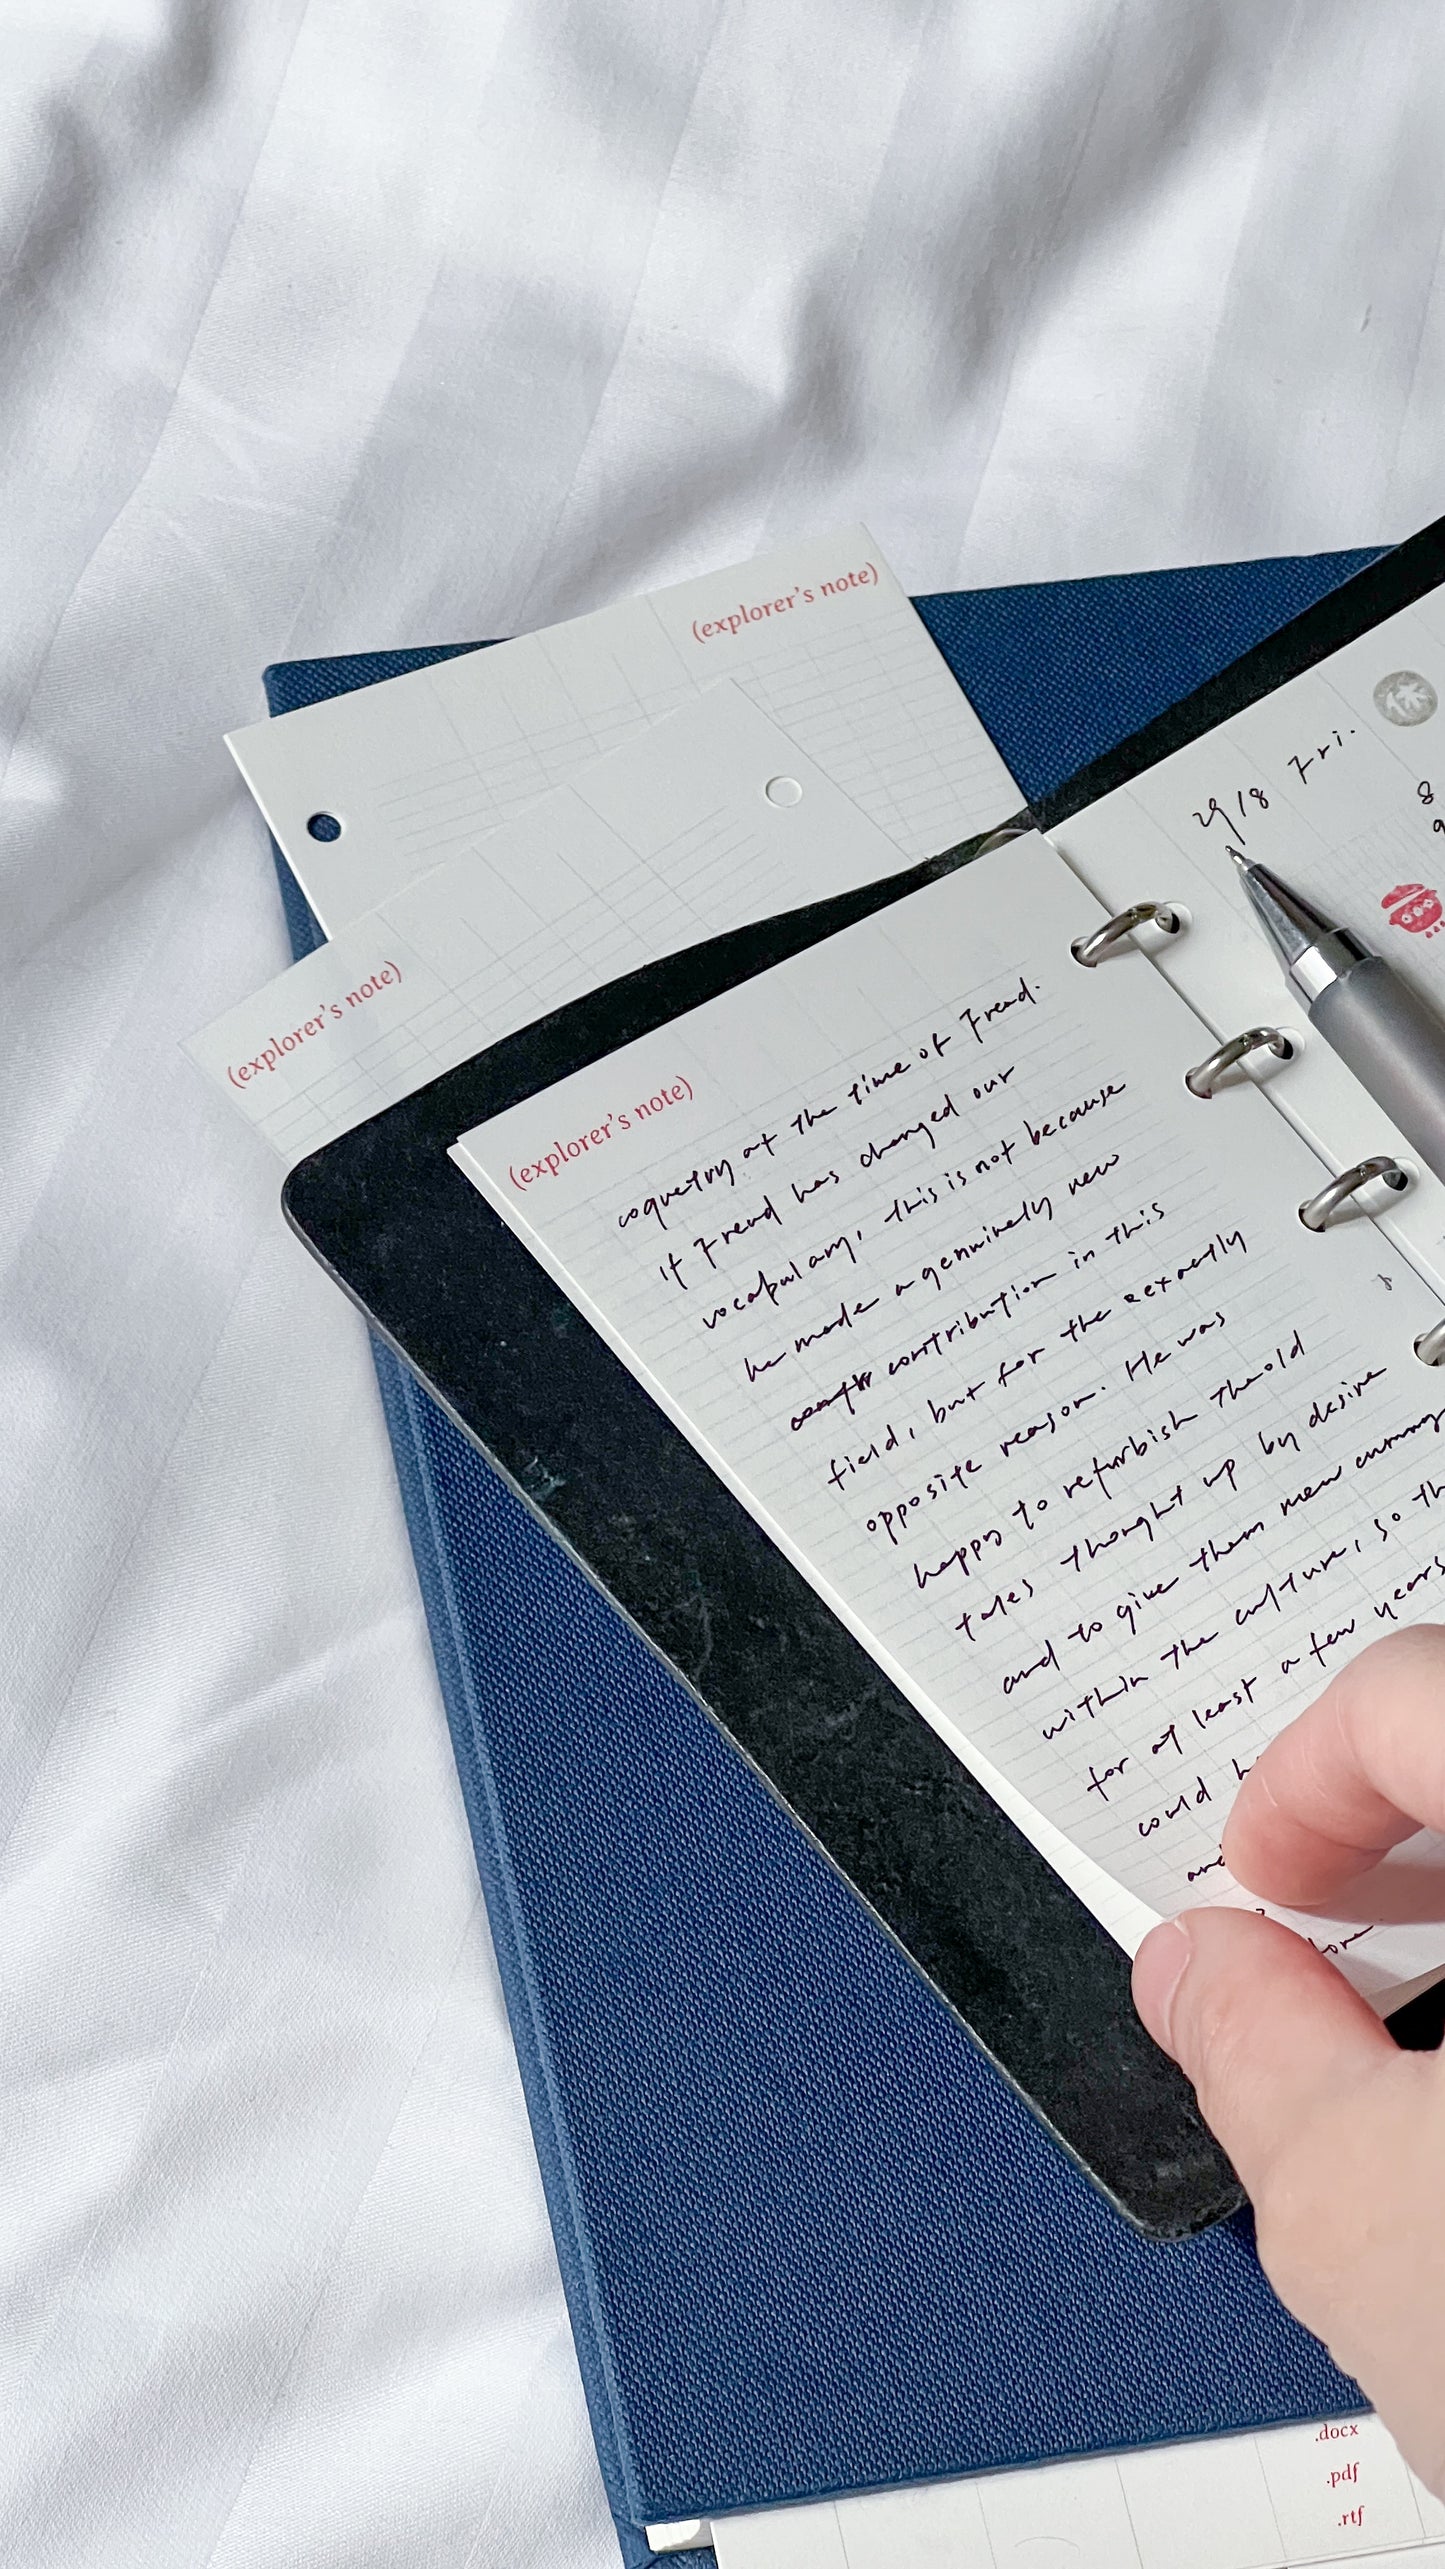 (explorer's note)
(explorer's note)
29/8 Fri.
8
9
(explorer's note)
coquetry at the time of Freud.
If Freud has changed our
vocabulary, this is not because
he made a genuinely new
contribution in this
field, but for the exactly
opposite reason. He was
happy to refurbish the old
tales thought up by desire
and to give them new
within the culture, so th
for at least a few years
could h
and
.docx
.pdf
.rtf